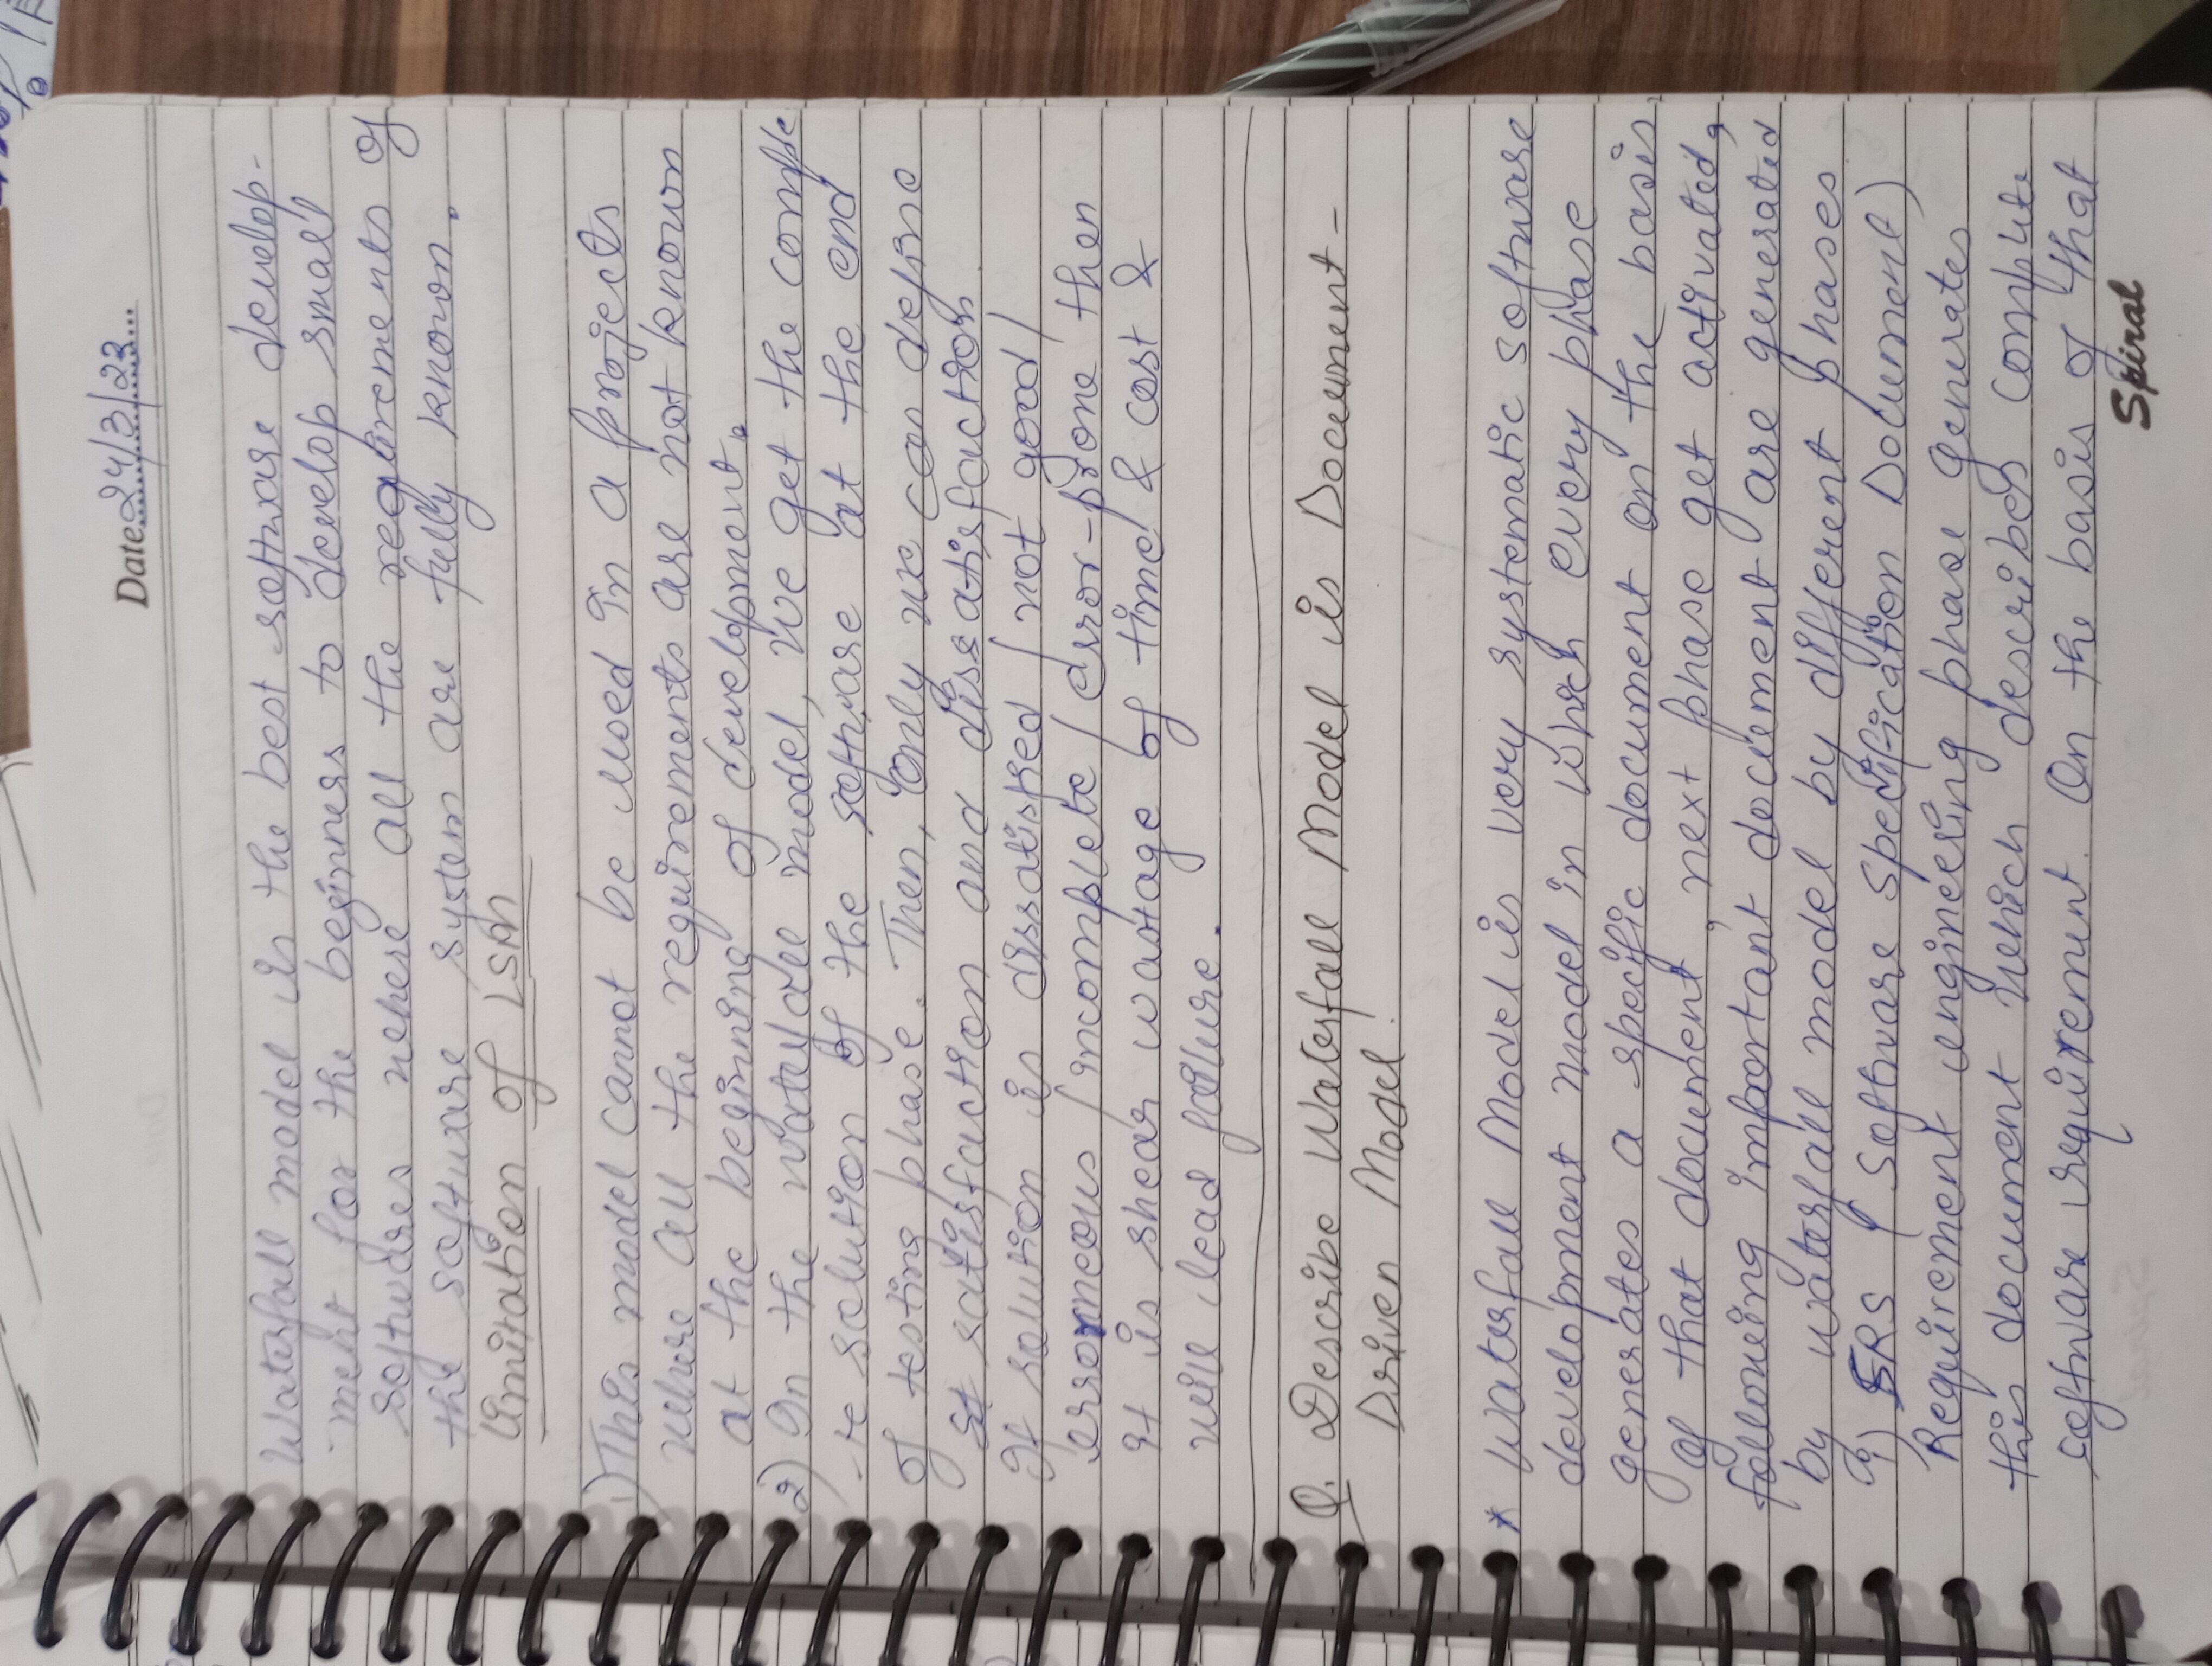 Date 24/3/23
Waterfall model is the best software develop-
ment for the beginners to develop small
softwares where all the requirements of
the software system are fully known.
limitation of LSM
1) This model cannot be used in a projects
where all the requirements are not known
at the beginning of development.
2) In the waterfall model, we get the comple
-te solution of the software at the end
of testing phase. Then, only we can define
st satisfaction and dissatisfaction.
If solution is dissatisfied / not good /
erroneous / incomplete / error-prone then
it is shear wantage of time & cost &
will lead failure.
Q. Describe Waterfall Model is Document-
Driven Model.
* Waterfall Model is very systematic software
development model in which every phase
generates a specific document on the basis
of that document, next phase get activated,
following important document are generated
by waterfall model by different phases
a) SRS (Software Specification Document)
Requirement engineering phase generates
this document which describes complete
software requirement. On the basis of that
Spiral